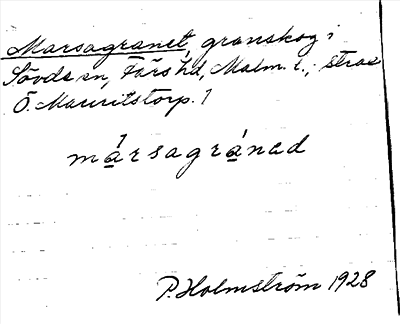 Marsagranet, granskog i
Sövde sn, Färs hd, Malm. l.; strax
Ö. Mauritstorp. 1
mársagránad
P. Holmström 1928